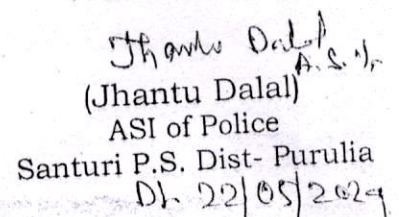 Jhantu Dalal
A.S.I
(Jhantu Dalal)
ASI of Police
Santuri P.S. Dist- Purulia
Dt. 22/05/2024